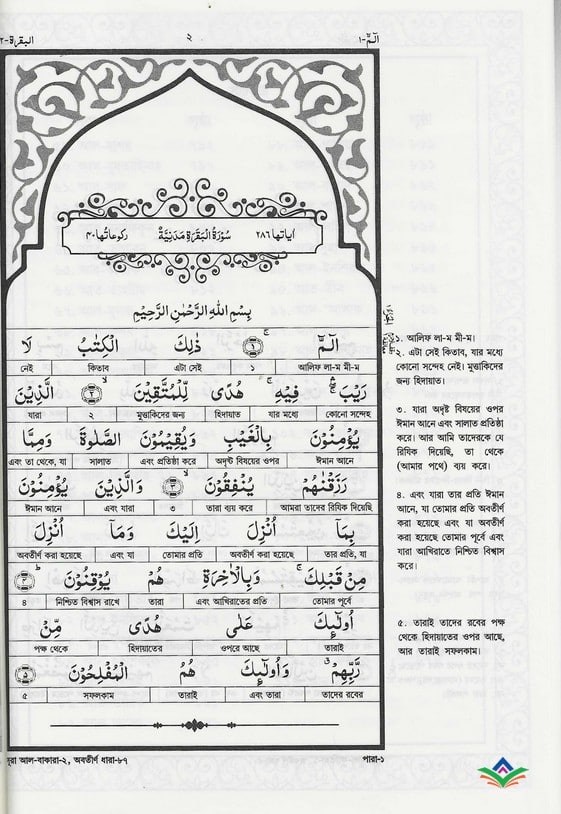 الٓمّٓ-١
٢
البقرة-٢
اٰياتها ٢٨٦
سُوْرَةُ الْبَقَرَةِ مَدَنِيَّةٌ
ركوعاتها ٤٠
بِسْمِ اللّٰهِ الرَّحْمٰنِ الرَّحِيْمِ
الٓمّٓ ۚ ١ ذٰلِكَ الْكِتٰبُ لَا
আলিফ লা-ম মী-ম ১ এটা সেই কিতাব নেই
رَيْبَ ۛۖ فِيْهِ ۛۚ هُدًى لِّلْمُتَّقِيْنَ ۙ ٢ الَّذِيْنَ
কোনো সন্দেহ যার মধ্যে হিদায়াত মুত্তাকিদের জন্য ২ যারা
يُؤْمِنُوْنَ بِالْغَيْبِ وَيُقِيْمُوْنَ الصَّلٰوةَ وَمِمَّا
ঈমান আনে অদৃষ্ট বিষয়ের ওপর এবং প্রতিষ্ঠা করে সালাত এবং তা থেকে, যা
رَزَقْنٰهُمْ يُنْفِقُوْنَ ۙ ٣ وَالَّذِيْنَ يُؤْمِنُوْنَ
আমরা তাদের রিযিক দিয়েছি তারা ব্যয় করে ৩ এবং যারা ঈমান আনে
بِمَآ اُنْزِلَ اِلَيْكَ وَمَآ اُنْزِلَ
তার প্রতি, যা অবতীর্ণ করা হয়েছে তোমার প্রতি এবং যা অবতীর্ণ করা হয়েছে
مِنْ قَبْلِكَ ۚ وَبِالْاٰخِرَةِ هُمْ يُوْقِنُوْنَ ؕ ٤
তোমার পূর্বে এবং আখিরাতের প্রতি তারা নিশ্চিত বিশ্বাস রাখে ৪
اُولٰٓئِكَ عَلٰى هُدًى مِّنْ
তারাই ওপরে আছে হিদায়াতের পক্ষ থেকে
رَّبِّهِمْ ۗ وَاُولٰٓئِكَ هُمُ الْمُفْلِحُوْنَ ٥
তাদের রবের এবং তারা তারাই সফলকাম ৫
১. আলিফ লা-ম মী-ম।
২. এটা সেই কিতাব, যার মধ্যে
কোনো সন্দেহ নেই। মুত্তাকিদের
জন্য হিদায়াত।
৩. যারা অদৃষ্ট বিষয়ের ওপর
ঈমান আনে এবং সালাত প্রতিষ্ঠা
করে। আর আমি তাদেরকে যে
রিযিক দিয়েছি, তা থেকে
(আমার পথে) ব্যয় করে।
৪. এবং যারা তার প্রতি ঈমান
আনে, যা তোমার প্রতি অবতীর্ণ
করা হয়েছে এবং যা অবতীর্ণ
করা হয়েছে তোমার পূর্বে এবং
যারা আখিরাতে নিশ্চিত বিশ্বাস
করে।
৫. তারাই তাদের রবের পক্ষ
থেকে হিদায়াতের ওপর আছে,
আর তারাই সফলকাম।
সূরা আল-বাকারা-২, অবতীর্ণ ধারা-৮৭
পারা-১